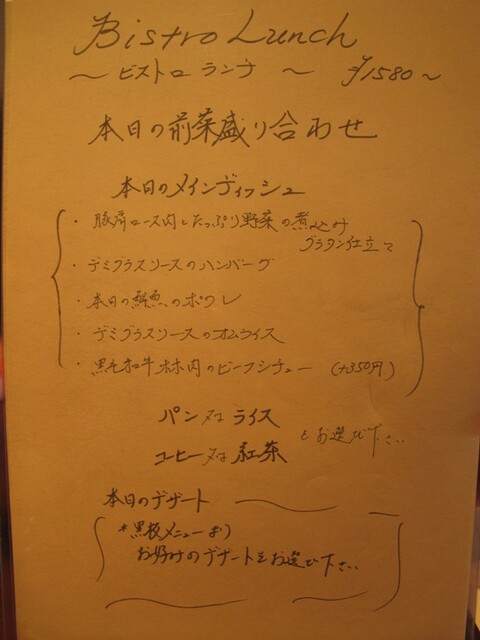 Bistro Lunch
～ ビストロ ランチ ～ ¥1580～
本日の前菜盛り合わせ
本日のメインディッシュ
・豚肩ロース肉とたっぷり野菜の煮込み
グラタン仕立て
・デミグラスソースのハンバーグ
・本日の鮮魚のポワレ
・デミグラスソースのオムライス
・黒毛和牛ホホ肉のビーフシチュー (+350円)
パン又は ライス
コーヒー又は 紅茶
をお選び下さい
本日のデザート
*黒板メニューより
お好みのデザートをお選び下さい